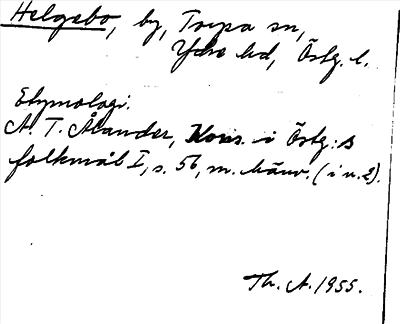 Helgebo, by, Torpa sn,
Ydre hd, Östg. l.
Etymologi.
A. T. Ålander, Kons. i Östg:s
folkmål I, s. 56, m. hänv. (i n. 2).
Th. A. 1955.